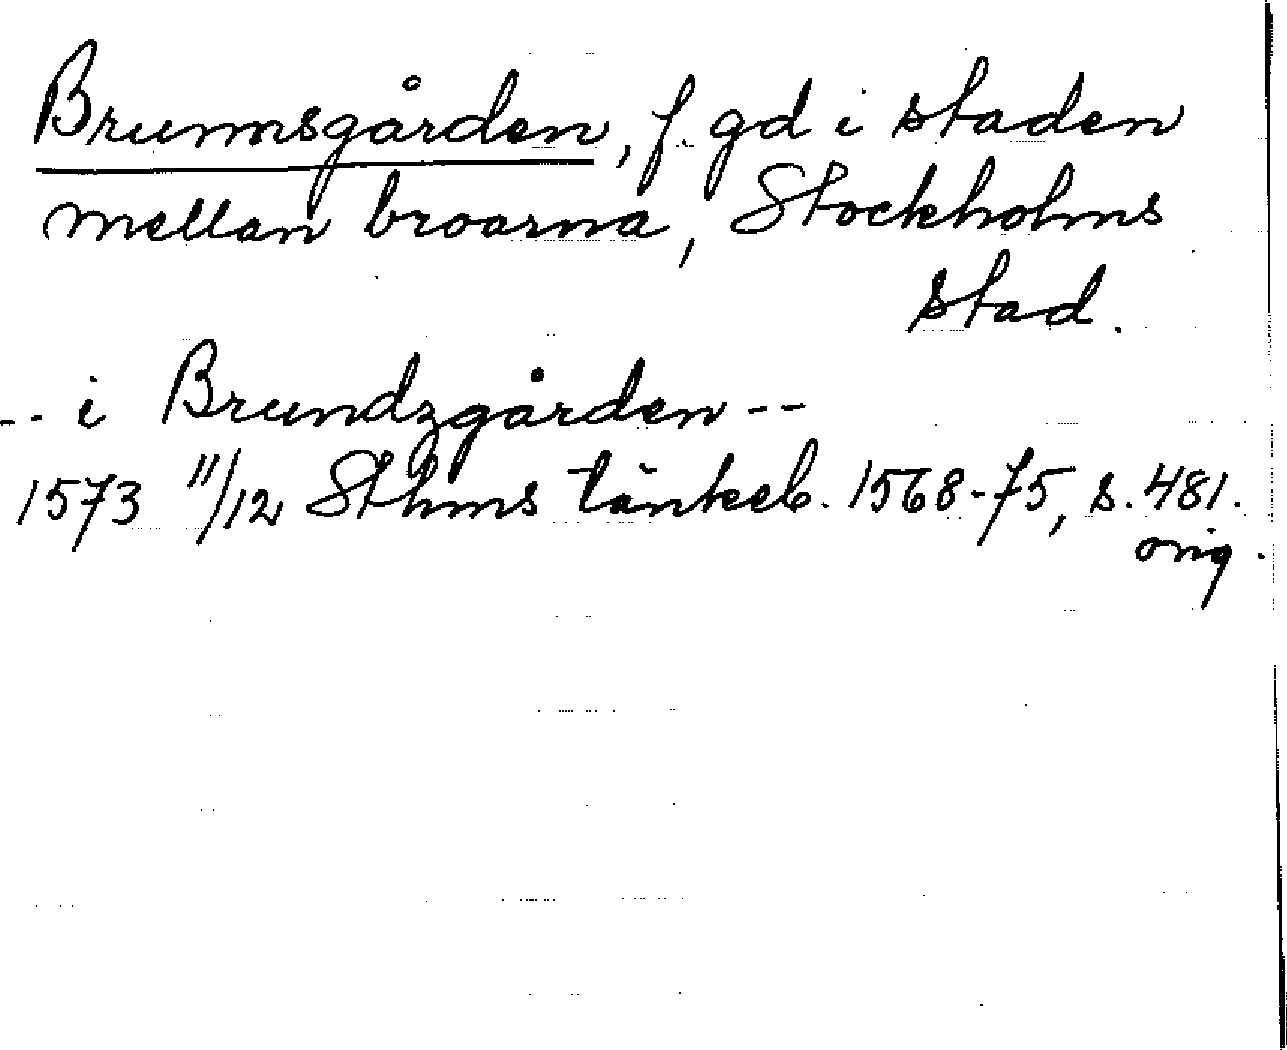 Brunnsgården, f. gd i staden
mellan broarna, Stockholms
stad.
-- i Brundzgården --
1573 11/12 Sthms tänkeb. 1568-75, s. 481.
orig.